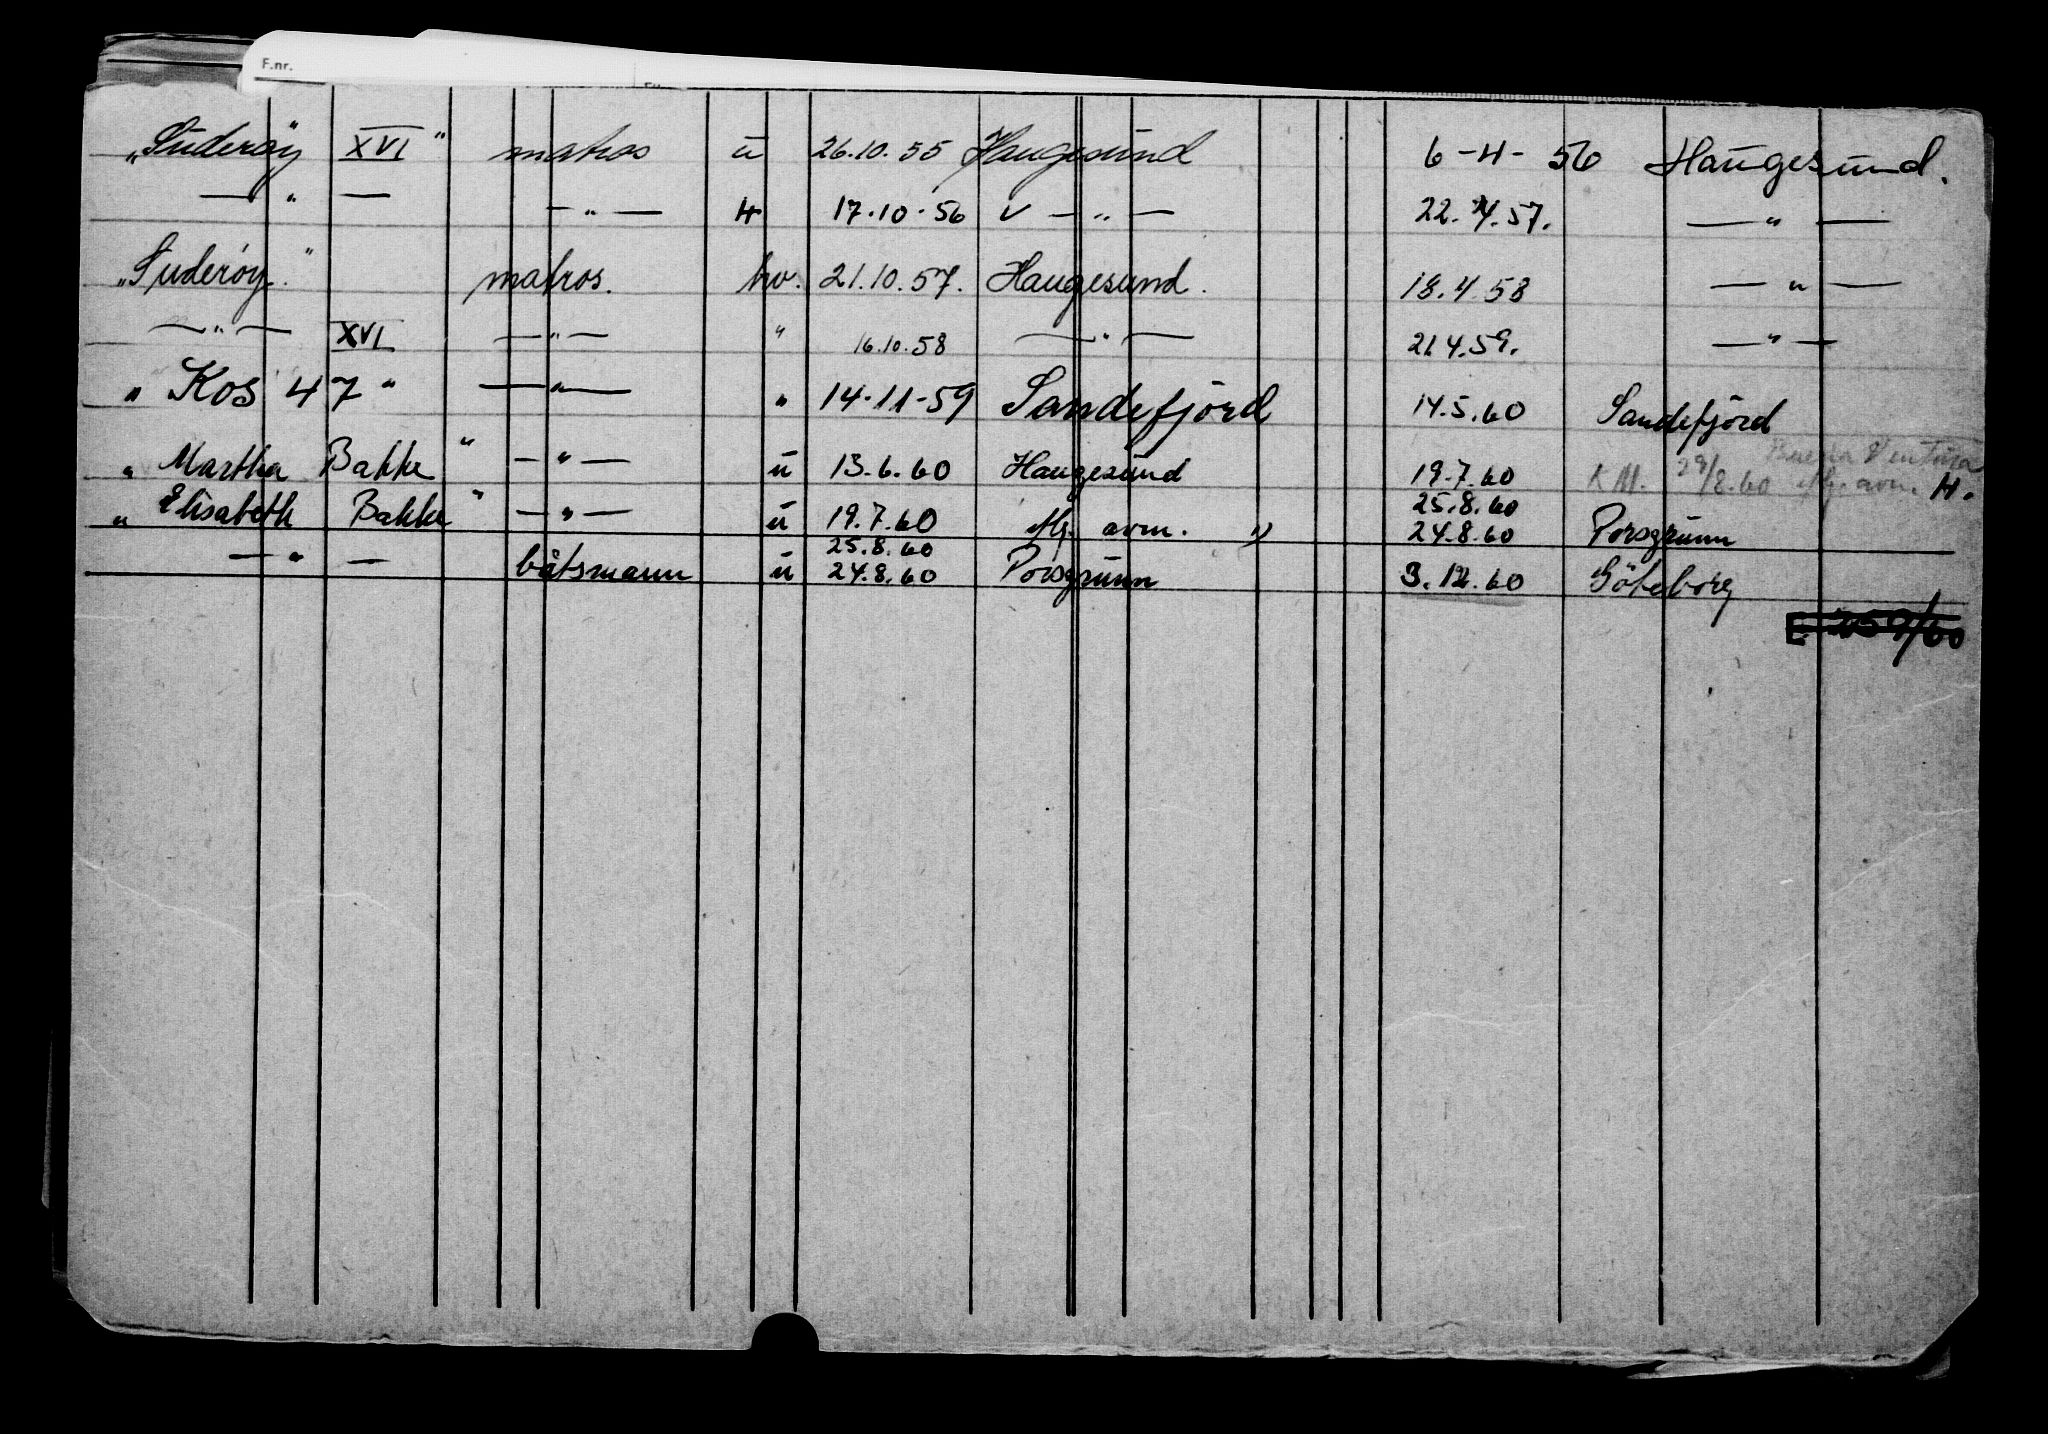 F.nr.
"Suderøy XVI" matros ū 26.10.55 Haugesund 6-4-56 Haugesund.
— " — — " — H 17.10.56 v — " — 22.4.57. — " —
"Suderøy." matros. hv. 21.10.57. Haugesund. 18.4.58 — " —
— " — XVI — " — " 16.10.58 — " — 21.4.59. — " —
"Kos 47" — " — " 14-11-59 Sandefjord 14.5.60 Sandefjord
"Martha Bakke" — " — ū 13.6.60 Haugesund 19.7.60 K.M. 29/8.60 Buena Ventura avm. H.
"Elisabeth Bakke" — " — ū 19.7.60 avm. " 25.8.60 24.8.60 Porsgrunn
— " — båtsmann ū 25.8.60 24.8.60 Porsgrunn 3.12.60 Göteborg